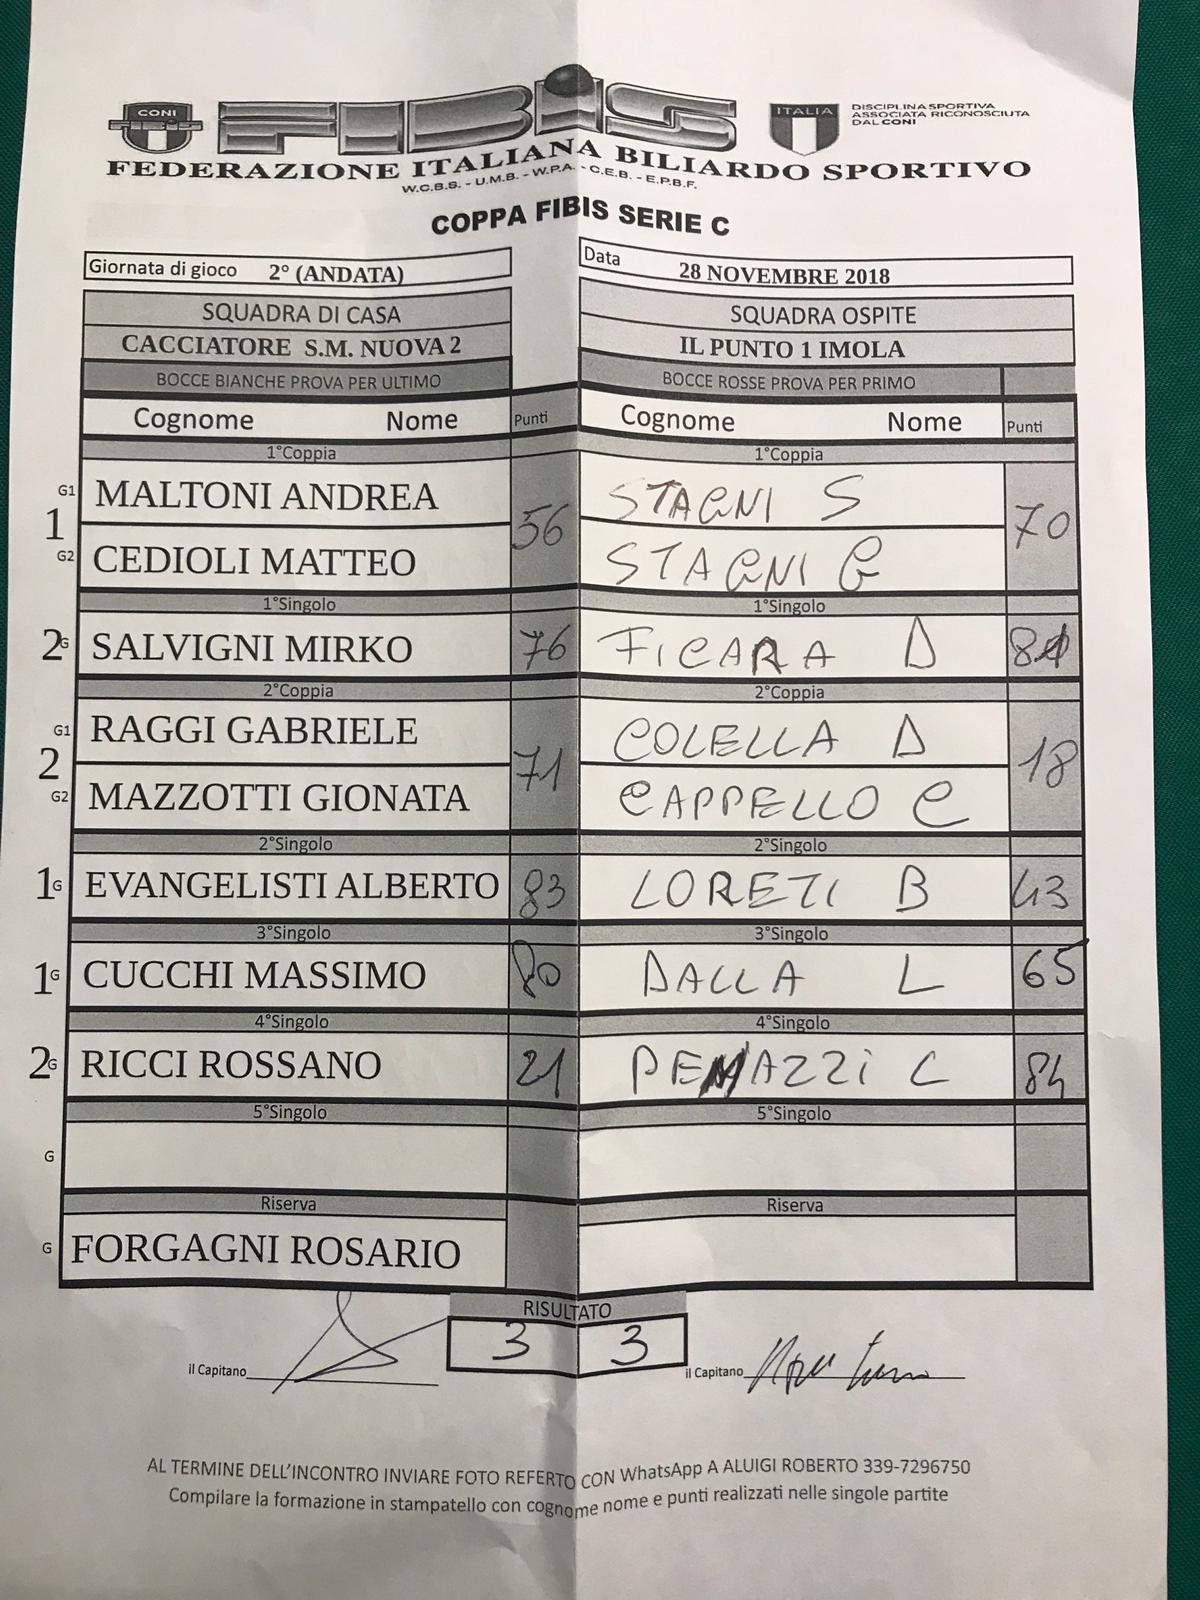 CONI FIBIS ITALIA DISCIPLINA SPORTIVA
ASSOCIATA RICONOSCIUTA
DAL CONI
FEDERAZIONE ITALIANA BILIARDO SPORTIVO
W.C.B.S. - U.M.B. - W.P.A. - C.E.B. - E.P.B.F.
COPPA FIBIS SERIE C
Giornata di gioco 2° (ANDATA) Data 28 NOVEMBRE 2018
SQUADRA DI CASA SQUADRA OSPITE
CACCIATORE S.M. NUOVA 2 IL PUNTO 1 IMOLA
BOCCE BIANCHE PROVA PER ULTIMO BOCCE ROSSE PROVA PER PRIMO
Cognome Nome Punti Cognome Nome Punti
1°Coppia 1°Coppia
G1 MALTONI ANDREA STAGNI S
1 56 70
G2 CEDIOLI MATTEO STAGNI G
1°Singolo 1°Singolo
2 G SALVIGNI MIRKO 76 FICARA D
2°Coppia 2°Coppia
G1 RAGGI GABRIELE COLELLA D
2 71 18
G2 MAZZOTTI GIONATA CAPPELLO C
2°Singolo 2°Singolo
1 G EVANGELISTI ALBERTO 83 LORETI B 43
3°Singolo 3°Singolo
1 G CUCCHI MASSIMO 80 DALLA L 65
4°Singolo 4°Singolo
2 G RICCI ROSSANO 21 C 84
5°Singolo 5°Singolo
G
Riserva Riserva
G FORGAGNI ROSARIO
RISULTATO
3 3
il Capitano il Capitano
AL TERMINE DELL'INCONTRO INVIARE FOTO REFERTO CON WhatsApp A ALUIGI ROBERTO 339-7296750
Compilare la formazione in stampatello con cognome nome e punti realizzati nelle singole partite